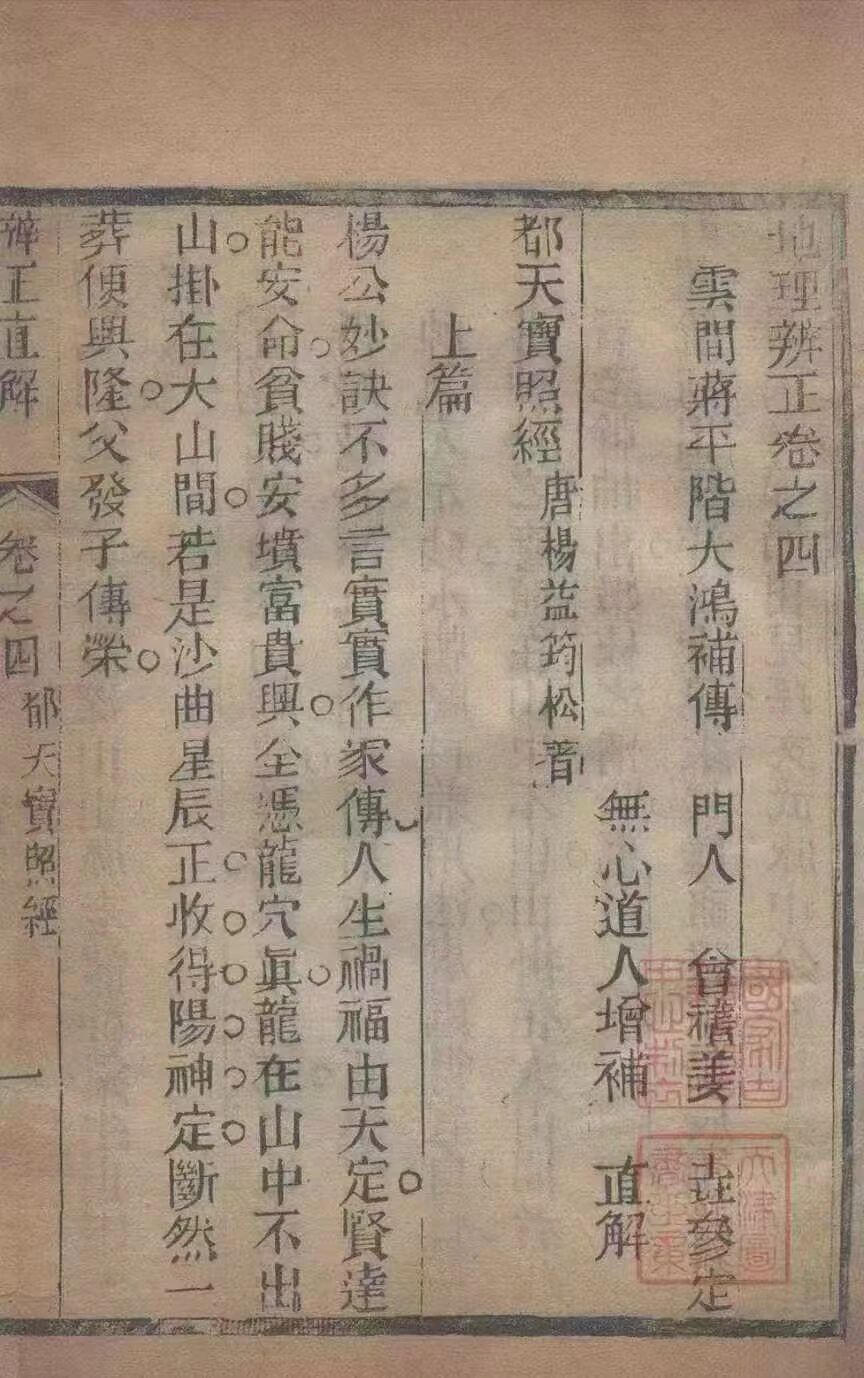 地理辨正卷之四
雲間蔣平階大鴻補傳 門人 曾禧姜垚參定
無心道人增補 直解
都天寶照經 唐楊益筠松著
上篇
楊公妙訣不多言實實作家傳人生禍福由天定賢達
能安命貧賤安墳富貴興全憑龍穴眞龍在山中不出
山掛在大山間若是沙曲星辰正收得陽神定斷然一
葬便興隆父發子傳榮
辨正直解 卷之四 都天寶照經 一